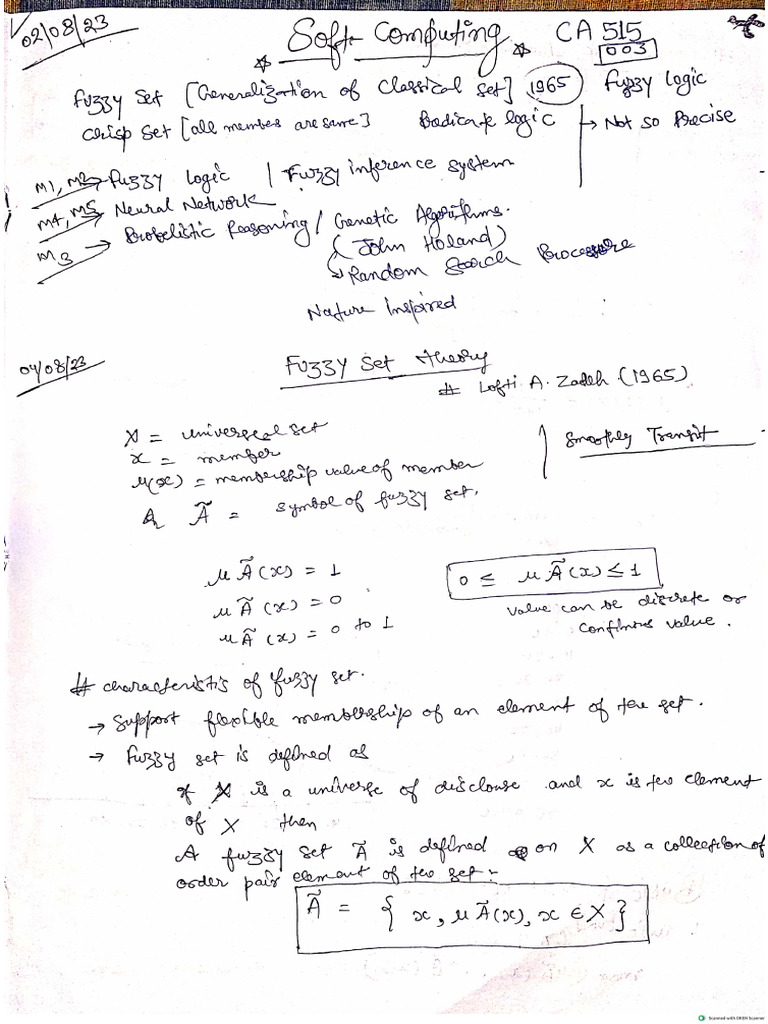 02/08/23
Soft Computing CA 515
003
Fuzzy Set [Generalization of Classical Set] 1965 Fuzzy Logic
Crisp Set [all member are same] logic → Not so Precise
M1, M2 → Fuzzy Logic / Fuzzy inference system
M4, M5 → Neural Network
M3 → Probelistic Reasoning / Genetic Algorithms.
(John Holand)
↳ Random Search Procesure
Nature Inspired
04/08/23
Fuzzy Set Theory
# Lofti A. Zadeh (1965)
X = universeal set
x = member
μ(x) = membership value of member
Ã = symbol of fuzzy set.
Smoothly Transit
μ Ã (x) = 1
μ Ã (x) = 0
μ Ã (x) = 0 to 1
0 ≤ μ Ã (x) ≤ 1
value can be discrete or
continuos value.
# characteristis of fuzzy set.
→ Support flexible membership of an element of the set.
→ Fuzzy set is defined as
if X is a universe of disclouse and x is the element
of X then
A fuzzy set Ã is defined on X as a collection of
order pair element of the set :-
Ã = { x, μ Ã(x), x ∈ X }
Scanned with OKEN Scanner